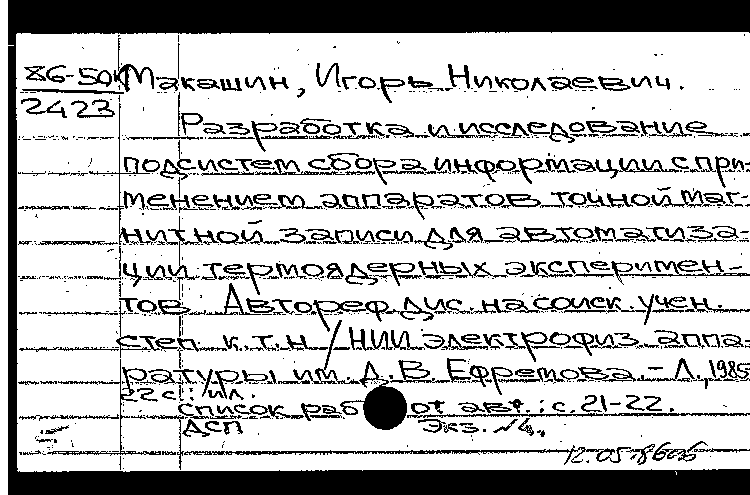 86-50к Макашин, Игорь Николаевич.
2423
Разработка и исследование
подсистем сбора информации с при-
менением аппаратов точной маг-
нитной записи для автоматиза-
ции термоядерных эксперимен-
тов. Автореф. дис. на соиск. учен.
степ. к.т.н / НИИ электрофиз. аппа-
ратуры им. Д.В. Ефремова. - Л., 1985
22 с.: ил.
список раб от авт.: с. 21-22.
ДСП Экз. №4.
12.05.86